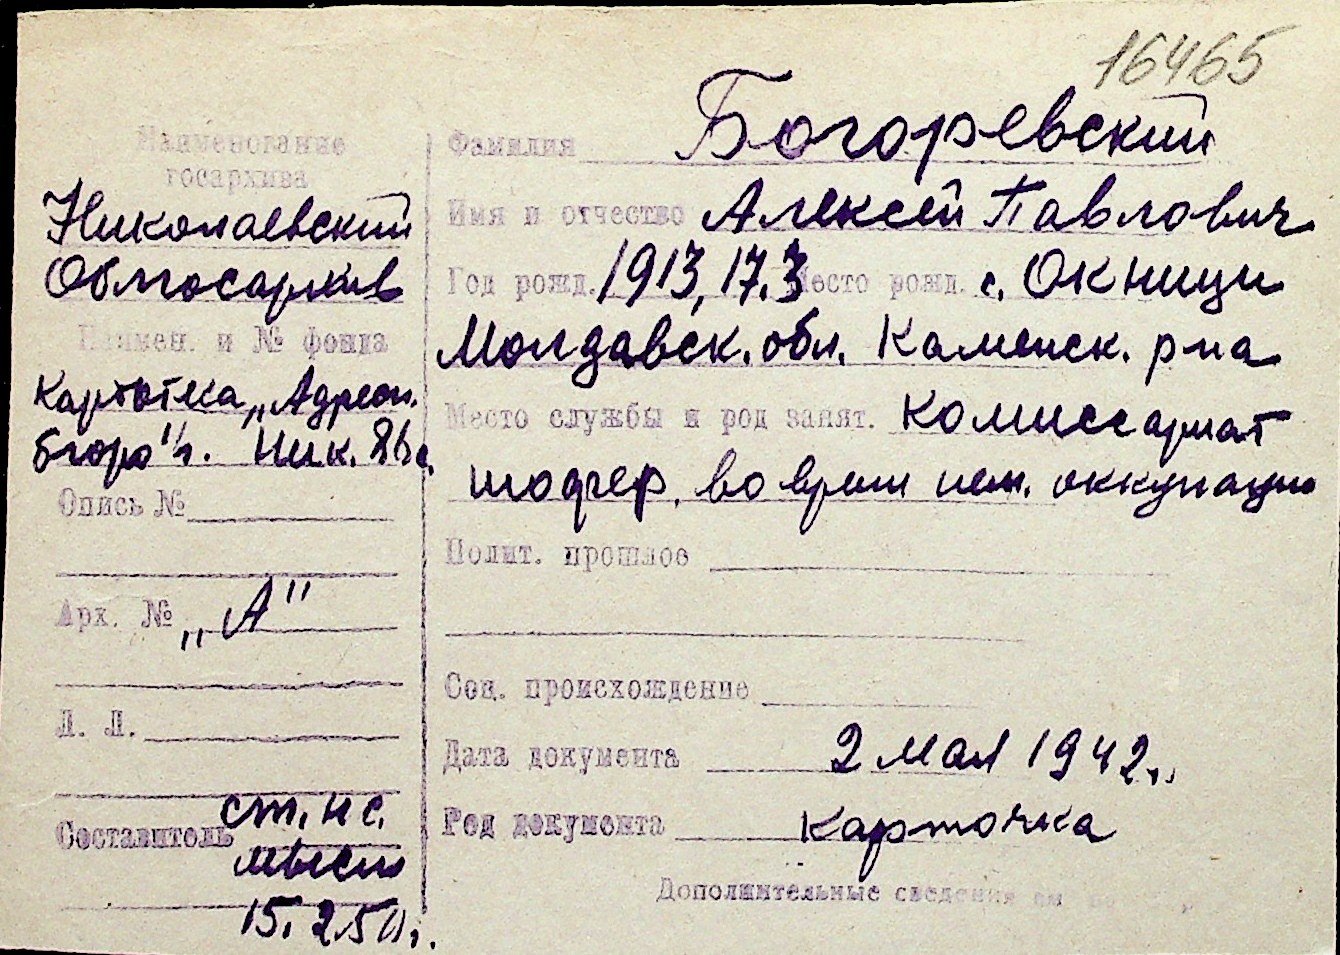 16465
Наименование
госархива
Николаевский
Облгосархив
Наимен. и № фонда
Картотека „Адресн.
бюро" г. Ник.
Опись №
Арх. № „А"
Л. Л.
Составитель ст. н с.
15. 2.50 г.
Фамилия Богоревский
Имя и отчество Алексей Павлович
Год рожд. 1913, 17.3 Место рожд. с. Окници
Молдавск. обл. Каменск. р-на
Место службы и род занят. комиссариат
шофер. во время нем. оккупации
Полит. прошлое
Соц. происхождение
Дата документа 2 мая 1942 г.
Род документа карточка
Дополнительные сведения